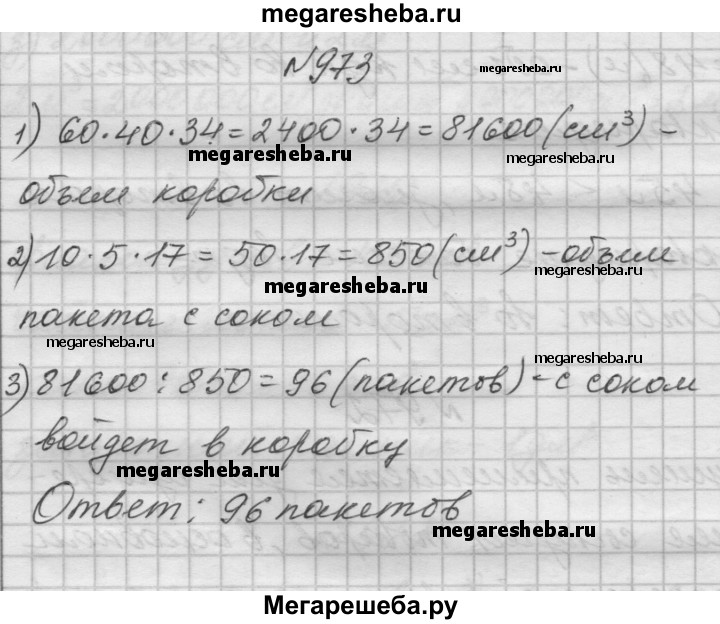 megaresheba.ru
№973
megaresheba.ru
1) 60·40·34=2400·34=81600(см³) –
megaresheba.ru
megaresheba.ru
объем коробки
2) 10·5·17=50·17=850(см³) – объем
megaresheba.ru
megaresheba.ru
пакета с соком
megaresheba.ru
megaresheba.ru
3) 81600:850=96(пакетов) – с соком
войдет в коробку
megaresheba.ru
Ответ: 96 пакетов
megaresheba.ru
Мегарешеба.ру